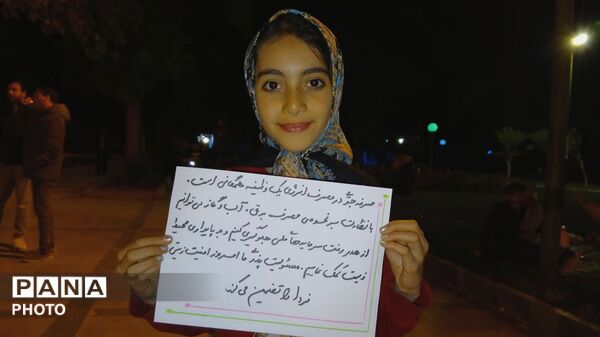 صرفه‌جویی در مصرف انرژی یک وظیفه همگانی است.
با نظارت بر نحوه‌ی مصرف برق، آب و گاز می‌توانیم
از هدر رفت سرمایه‌های ملی جلوگیری کنیم و به پایداری محیط
زیست کمک نماییم. مسئولیت پذیری ما امروز امنیت زیستی
فردا را تضمین می‌کند
PANA
PHOTO